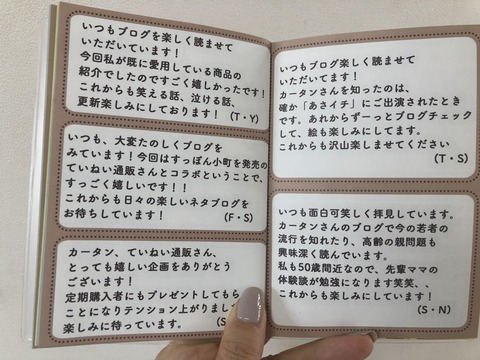 いつもブログを楽しく読ませて
いただいています！
今回私が既に愛用している商品の
紹介でしたのですごく嬉しかったです！
これからも笑える話、泣ける話、
更新楽しみにしております！ (T・Y)
いつも、大変たのしくブログを
みています！今回はすっぽん小町を発売の
ていねい通販さんとコラボということで、
すっごく嬉しいです！！
これからも日々の楽しいネタブログを
お待ちしています！ (F・S)
カータン、ていねい通販さん、
とっても嬉しい企画をありがとう
ございます！
定期購入者にもプレゼントしてもら
ことになりテンション上がりまし
楽しみに待っています。 (S
いつもブログ楽しく読ませて
いただいてます！
カータンさんを知ったのは、
確か「あさイチ」にご出演されたとき
です。あれからずーっとブログチェック
して、絵も楽しみにしてます。
これからも沢山楽しませてください
(T・S)
いつも面白可笑しく拝見しています。
カータンさんのブログで今の若者の
流行を知れたり、高齢の親問題も
興味深く読んでいます。
私も50歳間近なので、先輩ママの
体験談が勉強になります笑笑、、
これからも楽しみにしています！
(S・N)